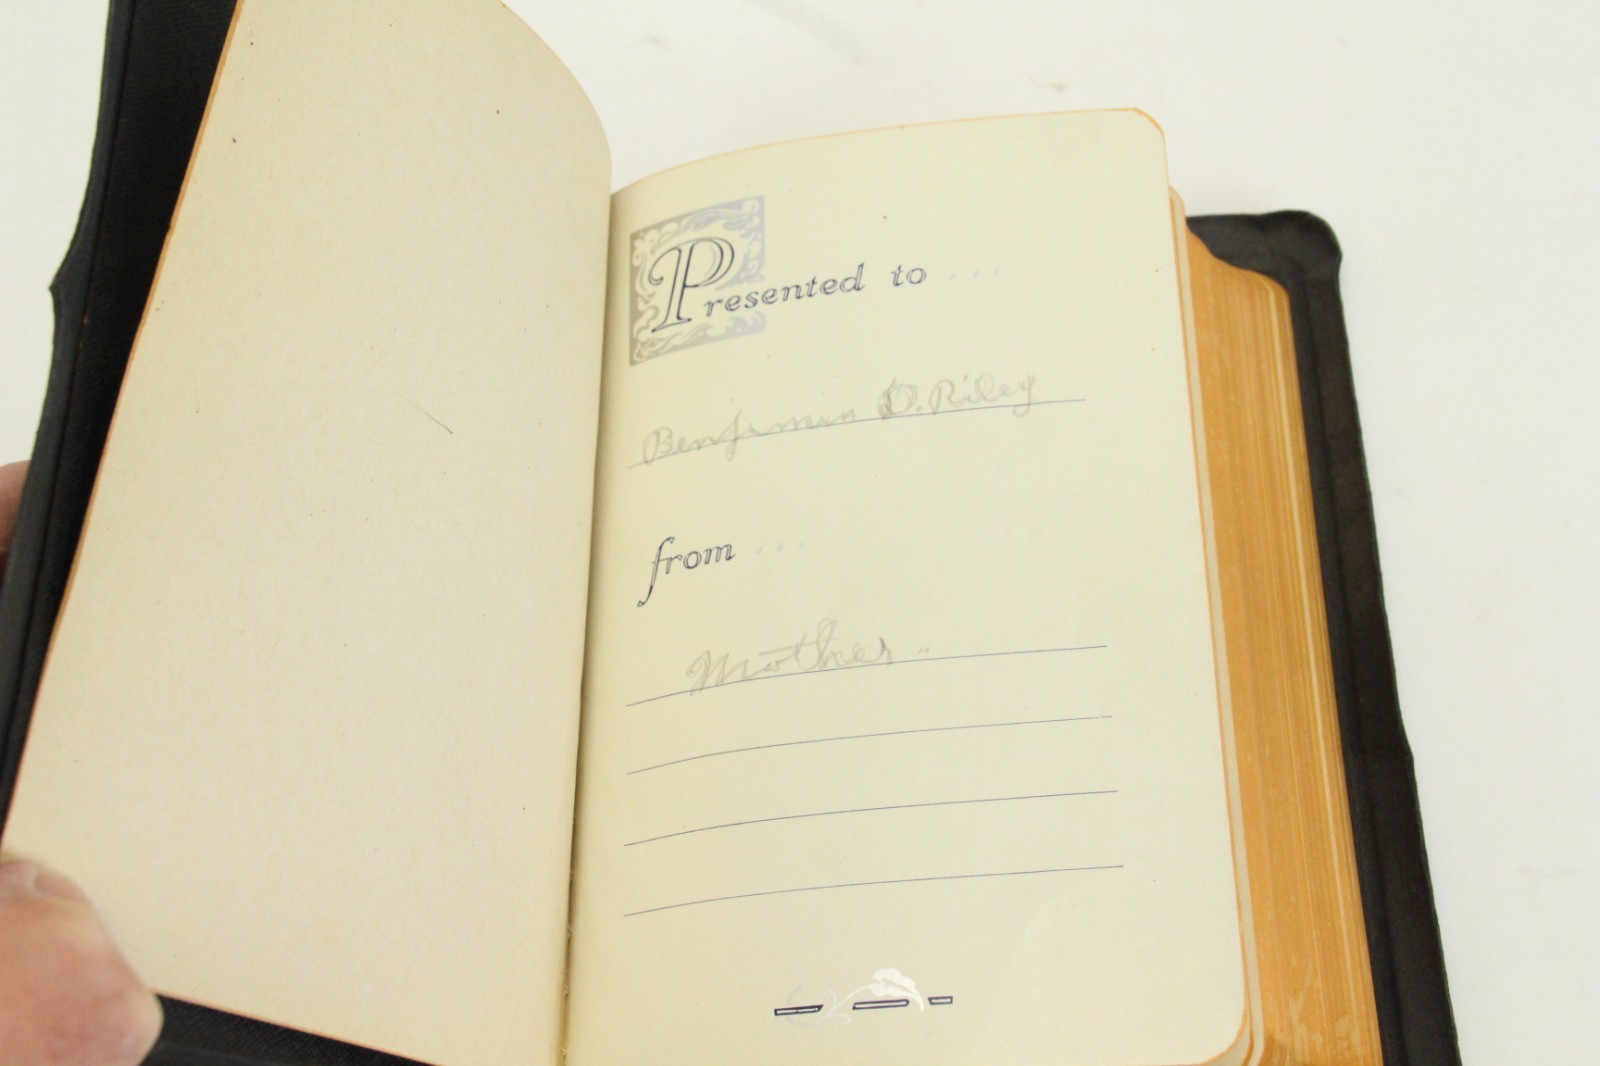 Presented to ...
Benjimin O. Riley
from ...
Mother